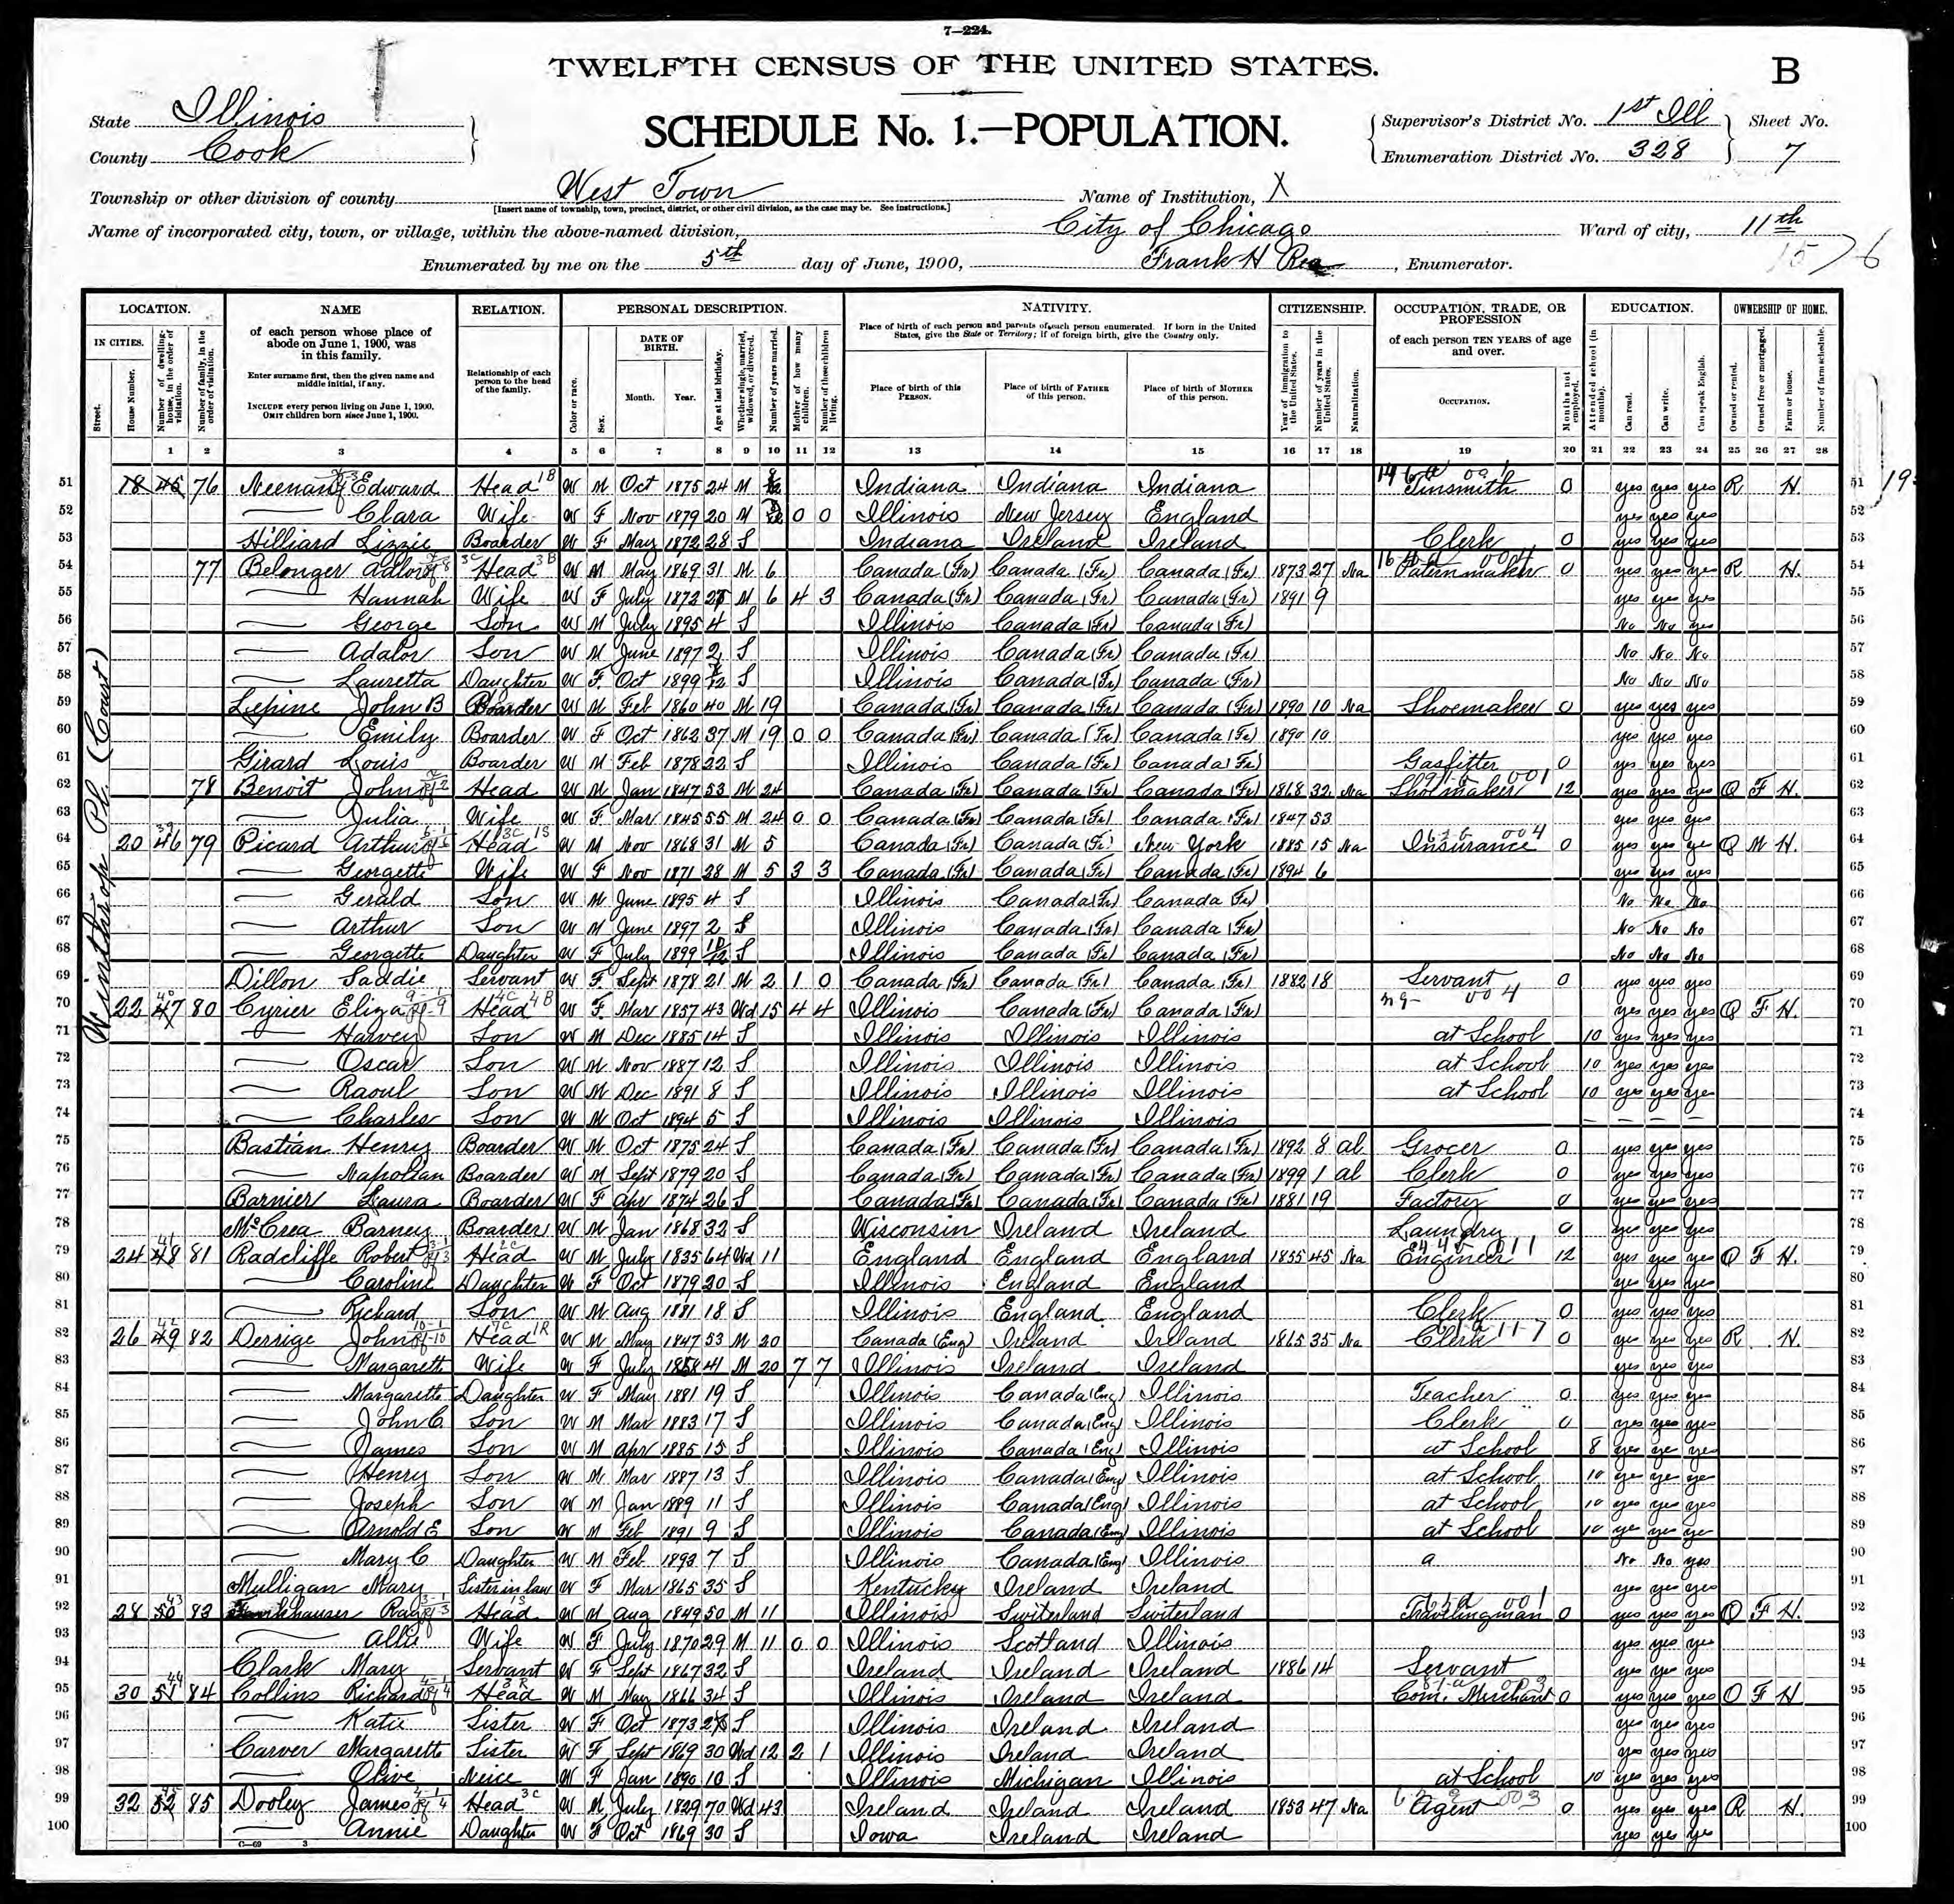 7—224.
TWELFTH CENSUS OF THE UNITED STATES.
B
State Illinois
County Cook
SCHEDULE No. 1.—POPULATION.
Supervisor's District No. 1st Ill
Enumeration District No. 328
Sheet No.
7
Township or other division of county West Town
[Insert name of township, town, precinct, district, or other civil division, as the case may be. See instructions.]
Name of Institution, X
Name of incorporated city, town, or village, within the above-named division, City of Chicago
Ward of city, 11th
Enumerated by me on the 5th day of June, 1900, Frank H Rea, Enumerator.
LOCATION. NAME RELATION. PERSONAL DESCRIPTION. NATIVITY. CITIZENSHIP. OCCUPATION, TRADE, OR PROFESSION EDUCATION. OWNERSHIP OF HOME.
IN CITIES.
Street.
House Number.
Number of dwelling-house, in the order of visitation.
Number of family, in the order of visitation.
of each person whose place of abode on June 1, 1900, was in this family.
Enter surname first, then the given name and middle initial, if any.
INCLUDE every person living on June 1, 1900.
OMIT children born since June 1, 1900.
Relationship of each person to the head of the family.
Color or race.
Sex.
DATE OF BIRTH.
Month. Year.
Age at last birthday.
Whether single, married, widowed, or divorced.
Number of years married.
Mother of how many children.
Number of these children living.
Place of birth of each person and parents of each person enumerated. If born in the United States, give the State or Territory; if of foreign birth, give the Country only.
Place of birth of this PERSON.
Place of birth of FATHER of this person.
Place of birth of MOTHER of this person.
Year of immigration to the United States.
Number of years in the United States.
Naturalization.
of each person TEN YEARS of age and over.
OCCUPATION.
Months not employed.
Attended school (in months).
Can read.
Can write.
Can speak English.
Owned or rented.
Owned free or mortgaged.
Farm or house.
Number of farm schedule.
1 2 3 4 5 6 7 8 9 10 11 12 13 14 15 16 17 18 19 20 21 22 23 24 25 26 27 28
Winthrop Pl. (Court)
51 18 45 76 Neenan Edward Head W M Oct 1875 24 M Indiana Indiana Indiana Tinsmith 0 yes yes yes R H. 51
52 Clara Wife W F Nov 1879 20 M 0 0 Illinois New Jersey England yes yes yes 52
53 Hilliard Lizzie Boarder W F May 1872 28 S Indiana Ireland Ireland Clerk 0 yes yes yes 53
54 77 Belonger Adlor Head W M May 1869 31 M 6 Canada (Fr) Canada (Fr) Canada (Fr) 1873 27 Na Paternmaker 0 yes yes yes R H. 54
55 Hannah Wife W F July 1872 27 M 6 4 3 Canada (Fr) Canada (Fr) Canada (Fr) 1891 9 yes yes yes 55
56 George Son W M July 1895 4 S Illinois Canada (Fr) Canada (Fr) No No yes 56
57 Adalor Son W M June 1897 2 S Illinois Canada (Fr) Canada (Fr) No No No 57
58 Lauretta Daughter W F Oct 1899 S Illinois Canada (Fr) Canada (Fr) No No No 58
59 Lepine John B Boarder W M Feb 1860 40 M 19 Canada (Fr) Canada (Fr) Canada (Fr) 1890 10 Na Shoemaker 0 yes yes yes 59
60 Emily Boarder W F Oct 1862 37 M 19 0 0 Canada (Fr) Canada (Fr) Canada (Fr) 1890 10 yes yes yes 60
61 Girard Louis Boarder W M Feb 1878 22 S Illinois Canada (Fr) Canada (Fr) Gasfitter 0 yes yes yes 61
62 78 Benoit John Head W M Jan 1847 53 M 24 Canada (Fr) Canada (Fr) Canada (Fr) 1868 32 Na Shoemaker 12 yes yes yes O F H. 62
63 Julia Wife W F Mar 1845 55 M 24 0 0 Canada (Fr) Canada (Fr) Canada (Fr) 1847 53 yes yes yes 63
64 20 46 79 Picard Arthur Head W M Nov 1868 31 M 5 Canada (Fr) Canada (Fr) New York 1885 15 Na Insurance 0 yes yes ye O M H. 64
65 Georgette Wife W F Nov 1871 28 M 5 3 3 Canada (Fr) Canada (Fr) Canada (Fr) 1894 6 yes yes yes 65
66 Gerald Son W M June 1895 4 S Illinois Canada (Fr) Canada (Fr) No No No 66
67 Arthur Son W M June 1897 2 S Illinois Canada (Fr) Canada (Fr) No No No 67
68 Georgette Daughter W F July 1899 10/12 S Illinois Canada (Fr) Canada (Fr) No No No 68
69 Dillon Saddie Servant W F Sept 1878 21 M 2 1 0 Canada (Fr) Canada (Fr) Canada (Fr) 1882 18 Servant 0 yes yes yes 69
70 22 47 80 Cyrier Eliza Head W F Mar 1857 43 Wd 15 4 4 Illinois Canada (Fr) Canada (Fr) yes yes yes O F H. 70
71 Harvey Son W M Dec 1885 14 S Illinois Illinois Illinois at School 10 yes yes yes 71
72 Oscar Son W M Nov 1887 12 S Illinois Illinois Illinois at School 10 yes yes yes 72
73 Raoul Son W M Dec 1891 8 S Illinois Illinois Illinois at School 10 yes yes ye 73
74 Charles Son W M Oct 1894 5 S Illinois Illinois Illinois — — — 74
75 Bastian Henry Boarder W M Oct 1875 24 S Canada (Fr) Canada (Fr) Canada (Fr) 1892 8 al Grocer 0 yes yes yes 75
76 Napoltan Boarder W M Sept 1879 20 S Canada (Fr) Canada (Fr) Canada (Fr) 1899 1 al Clerk 0 yes yes yes 76
77 Barnier Laura Boarder W F apr 1874 26 S Canada (Fr) Canada (Fr) Canada (Fr) 1881 19 Factory 0 yes yes yes 77
78 McCrea Barney Boarder W M Jan 1868 32 S Wisconsin Ireland Ireland Laundry 0 yes yes yes 78
79 24 48 81 Radcliffe Robert Head W M July 1835 64 Wd 11 England England England 1855 45 Na Engineer 12 yes yes yes O F H. 79
80 Caroline Daughter W F Oct 1879 20 S Illinois England England yes yes yes 80
81 Richard Son W M Aug 1881 18 S Illinois England England Clerk 0 yes yes yes 81
82 26 49 82 Derrige John Head W M May 1847 53 M 20 Canada (Eng) Ireland Ireland 1865 35 Na Clerk 0 yes yes yes R H. 82
83 Margarett Wife W F July 1858 41 M 20 7 7 Illinois Ireland Ireland yes yes yes 83
84 Margarette Daughter W F May 1881 19 S Illinois Canada (Eng) Illinois Teacher 0 yes yes ye 84
85 John C. Son W M Mar 1883 17 S Illinois Canada (Eng) Illinois Clerk 0 yes yes yes 85
86 James Son W M apr 1885 15 S Illinois Canada (Eng) Illinois at School 8 yes ye ye 86
87 Henry Son W M Mar 1887 13 S Illinois Canada (Eng) Illinois at School 10 ye ye ye 87
88 Joseph Son W M Jan 1889 11 S Illinois Canada (Eng) Illinois at School 10 yes yes yes 88
89 Arnold E Son W M Feb 1891 9 S Illinois Canada (Eng) Illinois at School 10 ye ye ye 89
90 Mary C Daughter W M Feb 1893 7 S Illinois Canada (Eng) Illinois a No No yes 90
91 Mulligan Mary Sister in law W F Mar 1865 35 S Kentucky Ireland Ireland yes yes yes 91
92 28 50 83 Head W M Aug 1849 50 M 11 Illinois Switerland Switerland Travelingman 0 yes yes yes O F H. 92
93 Allie Wife W F July 1870 29 M 11 0 0 Illinois Scotland Illinois yes yes yes 93
94 Clark Mary Servant W F Sept 1867 32 S Ireland Ireland Ireland 1886 14 Servant yes yes yes 94
95 30 51 84 Collins Richard Head W M May 1866 34 S Illinois Ireland Ireland Com. Merchant 0 yes yes yes O F H 95
96 Katie Sister W F Oct 1873 26 S Illinois Ireland Ireland yes yes yes 96
97 Carver Margarett Sister W F Sept 1869 30 Wd 12 2 1 Illinois Ireland Ireland yes yes yes 97
98 Olive Neice W F Jan 1890 10 S Illinois Michigan Illinois at School 10 yes yes yes 98
99 32 52 85 Dooley James Head W M July 1829 70 Wd 43 Ireland Ireland Ireland 1853 47 Na Agent 0 yes yes yes R H. 99
100 Annie Daughter W F Oct 1869 30 S Iowa Ireland Ireland yes yes ye 100